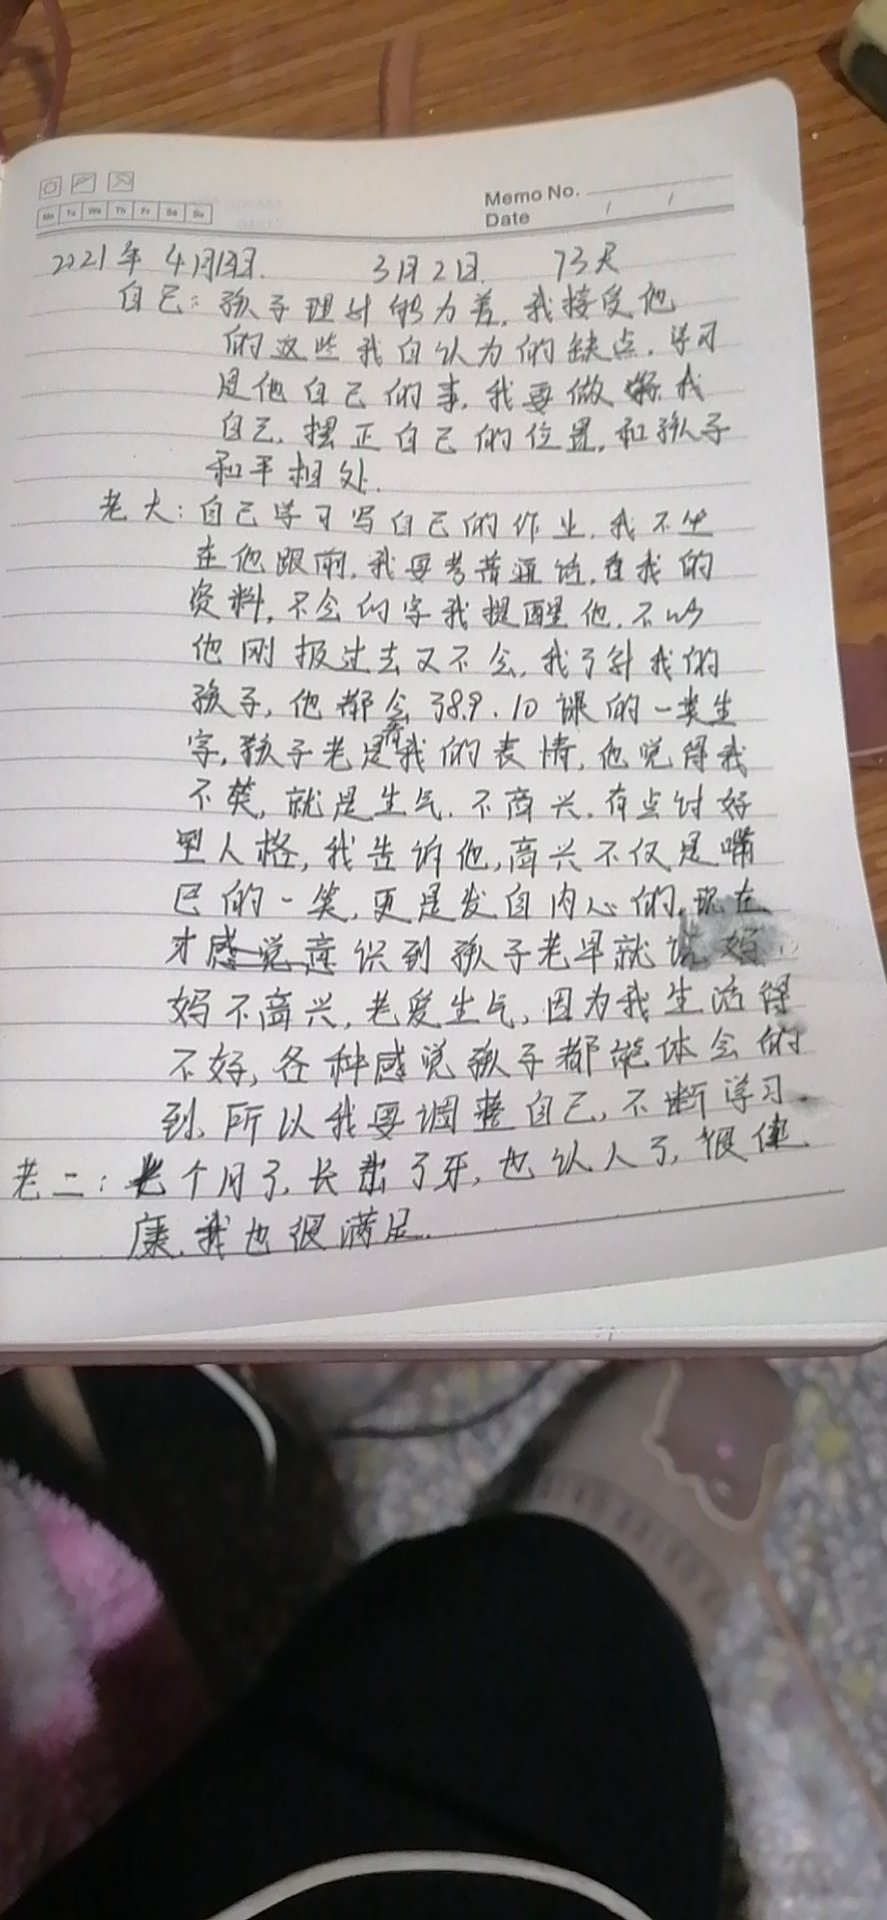 Memo No.
Mo Tu We Th Fr Sa Su
Date / /
2021年4月13日. 3月2日. 73天
自己：孩子理针能力差，我接受他
的这些我自认为的缺点，学习
是他自己的事，我要做好我
自己，摆正自己的位置，和孩子
和平相处.
老大：自己学习写自己的作业，我不坐
在他跟前，我要考普通话，查我的
资料，不会的字我提醒他，不
他刚报过去又不会，我了解我的
孩子，他都会了8.9.10课的一类生
字，孩子老是看我的表情，他觉得我
不笑，就是生气，不高兴，有点讨好
型人格，我告诉他，高兴不仅是嘴
巴的一笑，更是发自内心的，现在
才意识到孩子老早就说妈
妈不高兴，老爱生气，因为我生活得
不好，各种感觉孩子都能体会的
到，所以我要调整自己，不断学习.
老二：七个月了，长出了牙，也认人了，很健
康，我也很满足.